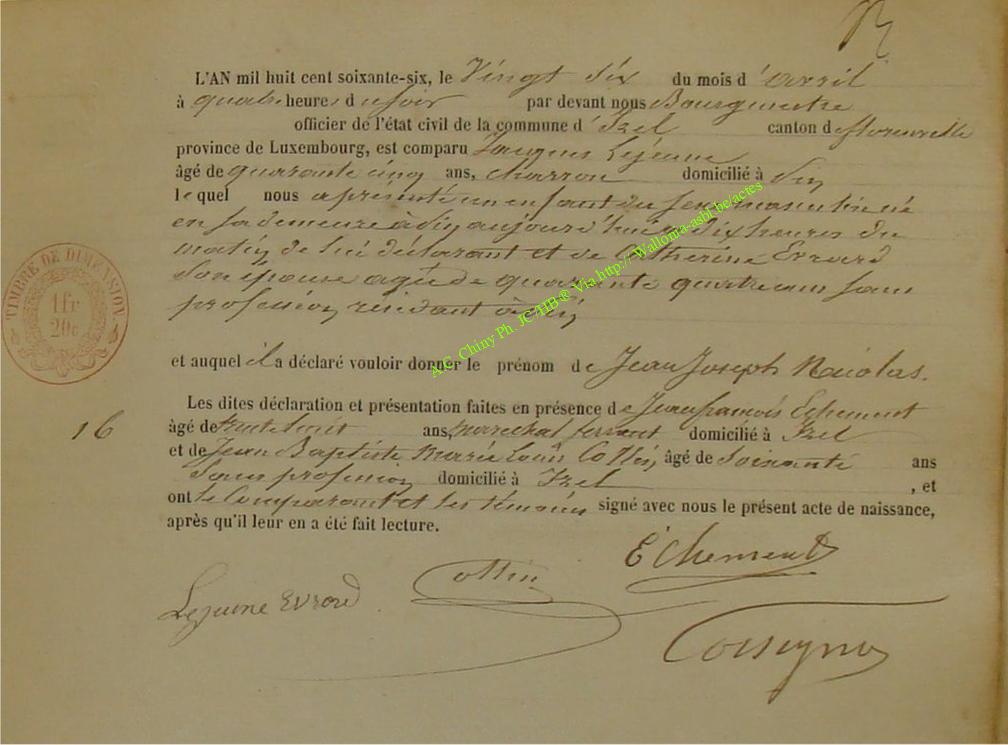 L'AN mil huit cent soixante-six, le Vingt Six du mois d'avril
à quatre heures du soir par devant nous Bourgmestre
officier de l'état civil de la commune d'Izel canton de florenville
province de Luxembourg, est comparu Jacques Lejeune
âgé de quarante cinq ans, charron domicilié à
le quel nous a présenté un enfant du sexe masculin né
en sa demeure à aujourd'hui à dix heures du
matin de lui déclarant et de Catherine Evrard
son épouse agée de quarante quatre ans sans
profession résidant à
TIMBRE DE DIMENSION
1 fr
20c
A.G. Chiny Ph. JC-HB® Via http://Wallonia-asbl.be/actes
et auquel il a déclaré vouloir donner le prénom de Jean Joseph Nicolas.
Les dites déclaration et présentation faites en présence de Jean françois Echement
16
âgé de trente huit ans, marechal ferrant domicilié à Izel
et de Jean Baptiste Marie Louis Collin, âgé de soixante ans
sans profession domicilié à Izel , et
ont le comparant et les témoins signé avec nous le présent acte de naissance,
après qu'il leur en a été fait lecture.
Echement
Collin
Lejeune Evrard